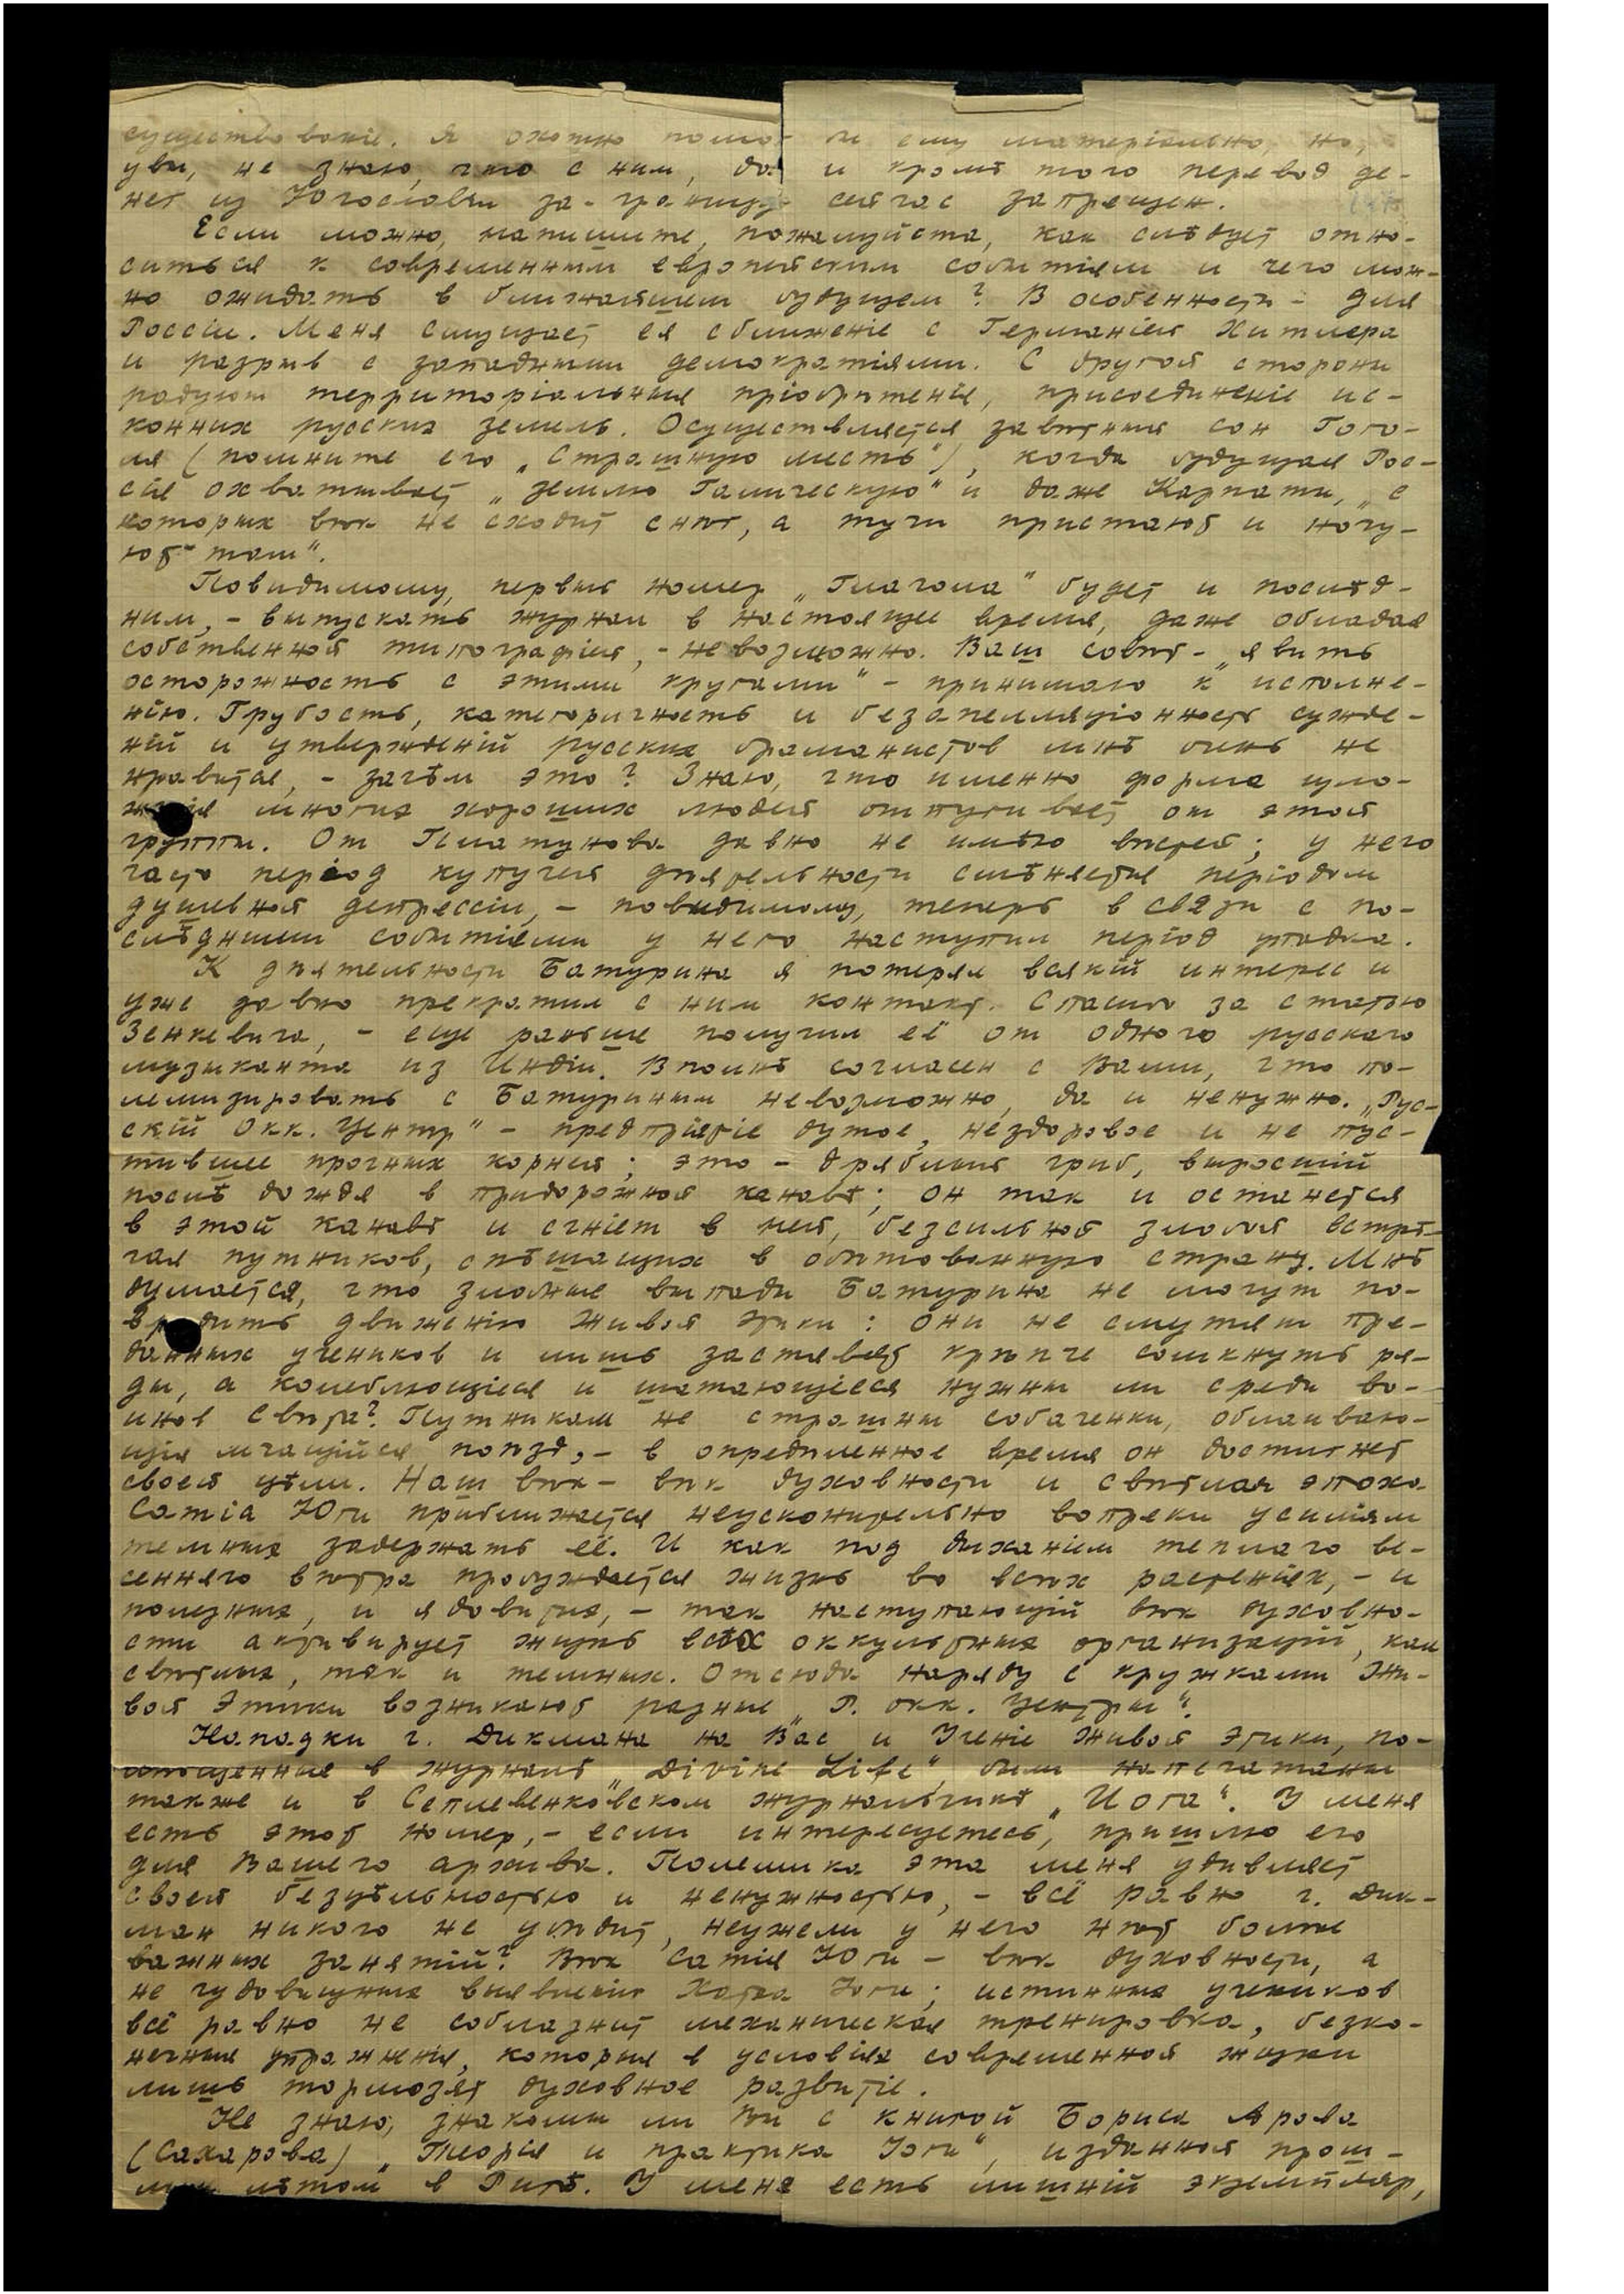 существованіе. Я охотно помо- бы ему матеріально, но,
увы, не знаю, что с ним, да и кромѣ того перевод де-
нег из Югославіи за-границу сейчас запрещен.
Если можно, напишите, пожалуйста, как слѣдует отно-
ситься к современным европейским событіям и чего мож-
но ожидать в ближайшем будущем? В особенности - для
Россіи. Меня смущает ея сближеніе с Германіей Хитлера
и разрыв с западными демократіями. С другой стороны
радуют территоріальныя пріобрѣтенія, присоединеніе ис-
конных русских земель. Осуществляется завѣтный сон Гого-
ля (помните его „Страшную месть"), когда будущая Рос-
сія охватывает „землю Галическую" и даже Карпаты, „с
которых вѣк не сходит снѣг, а тучи пристают и ночу-
ют там".
Повидимому, первый номер „Глагола" будет и послѣд-
ним, - выпускать журнал в настоящее время, даже обладая
собственной типографіей, - невозможно. Ваш совѣт - „явить
осторожность с этими кругами" - принимаю к исполне-
нію. Грубость, категоричность и безапелляціонность сужде-
ній и утвержденій русских браманистов мнѣ очень не
нравится, - зачѣм это? Знаю, что именно форма изло-
женія многих хороших людей отпугивает от этой
группы. От Платунова давно не имѣю вѣстей; у него
часто період кипучей дѣятельности смѣняется періодом
душевной депрессіи, - повидимому, теперь в связи с по-
слѣдними событіями у него наступил період упадка.
К дѣятельности Батурина я потерял всякій интерес и
уже давно прекратил с ним контакт. Спасибо за статью
Зенкевича, - еще раньше получил её от одного русского
музыканта из Индіи. Вполнѣ согласен с Вами, что по-
лемизировать с Батуриным невозможно, да и ненужно. „Рус-
скій Окк. Центр" - предпріятіе дутое, нездоровое и не пус-
тившее прочных корней; это - дряблый гриб, выросшій
послѣ дождя в придорожной канавѣ; он так и останется
в этой канавѣ и сгніет в ней, безсильной злобой встрѣ-
чая путников, спѣшащих в обѣтованную страну. Мнѣ
думается, что злобные выпады Батурина не могут по-
вредить движенію Живой Этики: они не смутят пре-
данных учеников и лишь заставят крѣпче сомкнуть ря-
ды, а колеблющіеся и шатающіеся нужны ли среди во-
инов Свѣта? Путникам не страшны собаченки, облаиваю-
щія мчащійся поѣзд, - в опредѣленное время он достигнет
своей цѣли. Наш вѣк - вѣк духовности и свѣтлая эпоха
Сатіа Юги приближается неукоснительно вопреки усиліям
темных задержать её. И как под дыханіем теплаго ве-
сенняго вѣтра пробуждается жизнь во всѣх растеніях, - и
полезных, и ядовитых, - так наступающій вѣк духовно-
сти активирует жизнь всѣх оккультных организацій, как
свѣтлых, так и темных. Отсюда наряду с кружками Жи-
вой Этики возникают разные „Р. окк. центры".
Нападки г. Дикмана на Вас и Ученіе Живой Этики, по-
мѣщенные в журналѣ „Divine Life", были напечатаны
также и в Селивенковском журнальчикѣ „Иога". У меня
есть этот номер, - если интересуетесь, пришлю его
для Вашего архива. Полемика эта меня удивляет
своей безцѣльностью и ненужностью, - всё равно г. Дик-
ман никого не убѣдит, неужели у него нѣт болѣе
важных занятій? Вѣк Сатія Юги - вѣк духовности, а
не чудовищных выявленій Хатха Іоги; истинных учеников
всё равно не соблазнит механическая тренировка, безко-
нечныя упражненія, которыя в условіях современной жизни
лишь тормозят духовное развитіе.
Не знаю, знакомы ли Вы с книгой Бориса Арова
(Сахарова) „Теорія и практика Іоги", изданной прош-
лым лѣтом в Ригѣ. У меня есть лишній экземпляр,